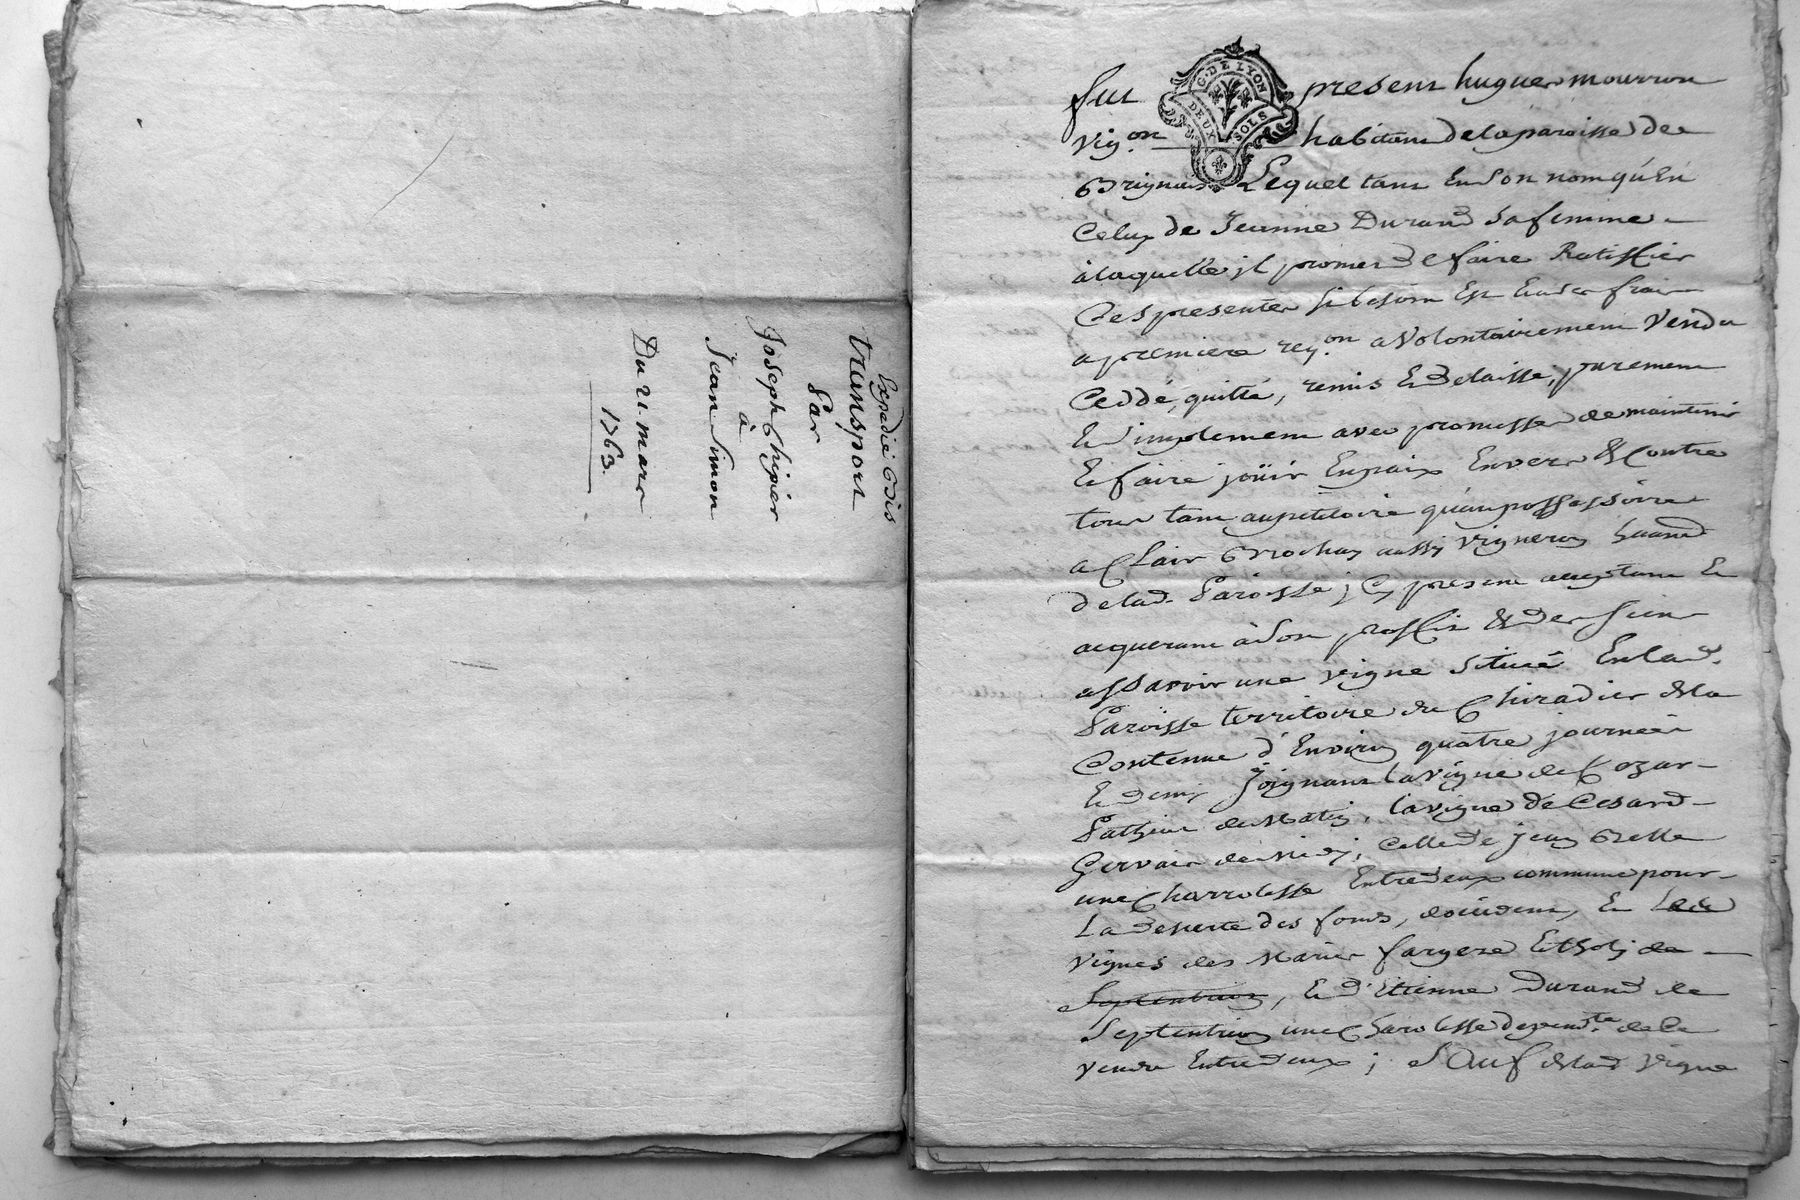 Expedié Bis
transport
Par
Joseph Chipier
à
Jean Simon
Du 21. mars
1763.
G. DE LYON
DEUX SOLS
fut present hugues mourron
vig.on habitant de la paroisse de
Brignais Lequel tant En son nom qu'En
Celuy de Jeanne Durand sa femme
à laquelle jl promet de faire Ratiffier
Ces presentes si besoin Est En des frais
a premiere req.on a volontairement vendu
Ceddé, quitté, remis Et delaissé, purement
Et simplement avec promesse de maintenir
Et faire joüir En paix Envers & Contre
tous tant au petitoire qu'au possessoire
a Clair Brochay aussi vigneron habitant
de lad. Paroisse, jCy present acceptant Et
acquerant à son proffit & des siens
assavoir une vigne située En lad.
Paroisse territoire du Chiradier de la
Contenue d'Environ quatre journées
Et demy joignant la vigne de
de Matin, la vigne de Cesard
Gervais de Midy, Celle de jean Bette
une Charrolesse Entredeux commune pour
La deserte des fonds, d'occident, Et
vignes des Mariés fargere Et de
Septentrion, Et d'Etienne Durand de
Septentrion une Charolesse depend.te de la
vendue Entredeux; Sauf de lad vigne